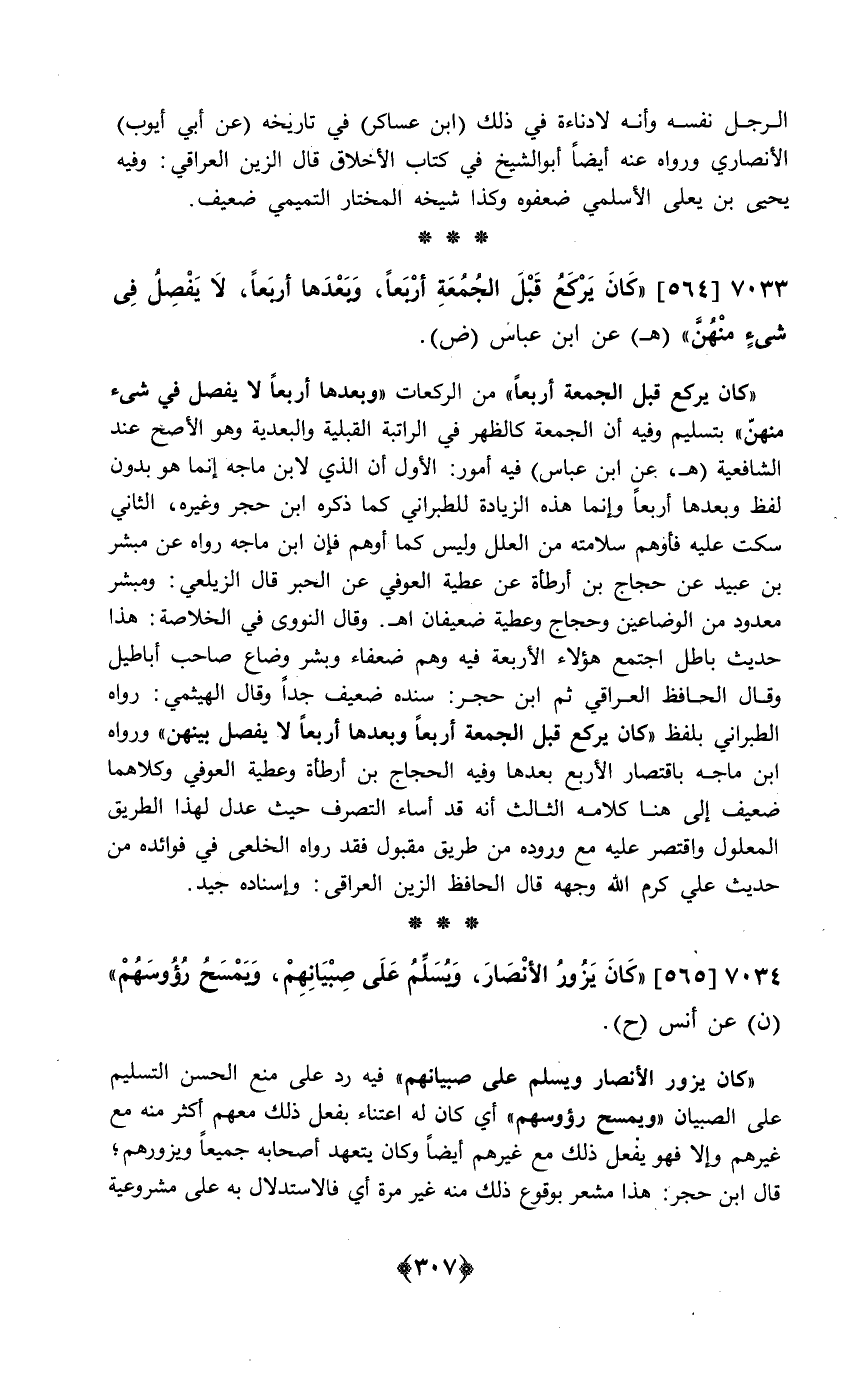 الرجل نفسه وأنه لادناءة في ذلك (ابن عساكر) في تاريخه (عن أبي أيوب)
الأنصاري ورواه عنه أيضاً أبوالشيخ في كتاب الأخلاق قال الزين العراقي: وفيه
يحيى بن يعلى الأسلمي ضعفوه وكذا شيخه المختار التميمي ضعيف.
* * *
٧٠٣٣ [٥٦٤] «كَانَ يَرْكَعُ قَبْلَ الجُمُعَةِ أرْبَعاً، وَبَعْدَها أربَعاً، لَا يَفْصِلُ فِى
شىءٍ مِنْهُنَّ» (هـ) عن ابن عباس (ض).
«كان يركع قبل الجمعة أربعاً» من الركعات «وبعدها أربعاً لا يفصل في شىء
منهنّ» بتسليم وفيه أن الجمعة كالظهر في الراتبة القبلية والبعدية وهو الأصح عند
الشافعية (هـ، عن ابن عباس) فيه أمور: الأول أن الذي لابن ماجه إنما هو بدون
لفظ وبعدها أربعاً وإنما هذه الزيادة للطبراني كما ذكره ابن حجر وغيره، الثاني
سكت عليه فأوهم سلامته من العلل وليس كما أوهم فإن ابن ماجه رواه عن مبشر
بن عبيد عن حجاج بن أرطأة عن عطية العوفي عن الحبر قال الزيلعي: ومبشر
معدود من الوضاعين وحجاج وعطية ضعيفان اهـ. وقال النووى في الخلاصة: هذا
حديث باطل اجتمع هؤلاء الأربعة فيه وهم ضعفاء وبشر وضاع صاحب أباطيل
وقال الحافظ العراقي ثم ابن حجر: سنده ضعيف جداً وقال الهيثمي: رواه
الطبراني بلفظ «كان يركع قبل الجمعة أربعاً وبعدها أربعاً لا يفصل بينهن» ورواه
ابن ماجه باقتصار الأربع بعدها وفيه الحجاج بن أرطأة وعطية العوفي وكلاهما
ضعيف إلى هنا كلامه الثالث أنه قد أساء التصرف حيث عدل لهذا الطريق
المعلول واقتصر عليه مع وروده من طريق مقبول فقد رواه الخلعى في فوائده من
حديث علي كرم الله وجهه قال الحافظ الزين العراقى: وإسناده جيد.
* * *
٧٠٣٤ [٥٦٥] «كَانَ يَزُورُ الأنْصَارَ، وَيُسَلِّمُ عَلَى صِبْيَانِهِمْ، وَيَمْسَحُ رُؤُوسَهُمْ»
(ن) عن أنس (ح).
«كان يزور الأنصار ويسلم على صبيانهم» فيه رد على منع الحسن التسليم
على الصبيان «ويمسح رؤوسهم» أي كان له اعتناء بفعل ذلك معهم أكثر منه مع
غيرهم وإلا فهو يفعل ذلك مع غيرهم أيضاً وكان يتعهد أصحابه جميعاً ويزورهم؛
قال ابن حجر: هذا مشعر بوقوع ذلك منه غير مرة أي فالاستدلال به على مشروعية
﴿٣٠٧﴾